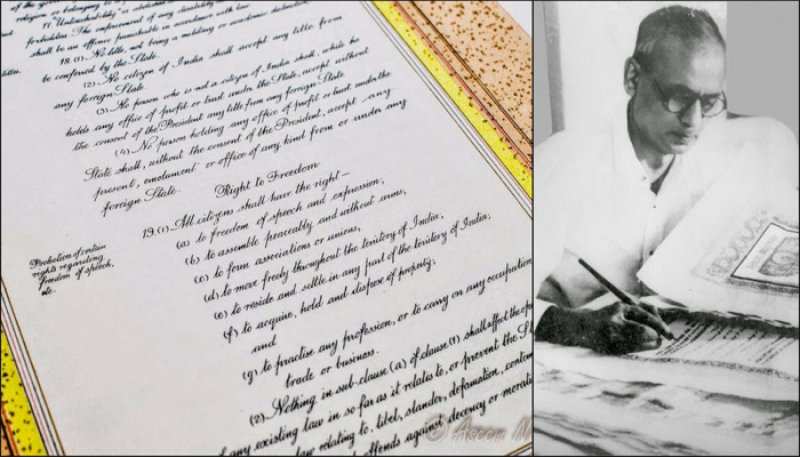 of the
religion or belonging to any
17. "Untouchability" is abolished
forbidden. The enforcement of any disability
shall be an offence punishable in accordance with law.
18. (1) No title, not being a military or academic distinction,
be conferred by the State.
(2) No citizen of India shall accept any title from
any foreign State.
(3) No person who is not a citizen of India shall, while he
holds any office of profit or trust under the State, accept without
the consent of the President any title from any foreign State.
(4) No person holding any office of profit or trust under the
State shall, without the consent of the President, accept any
present, emolument or office of any kind from or under any
foreign State.
Right to Freedom
Protection of certain
rights regarding
freedom of speech,
etc.
19. (1) All citizens shall have the right —
(a) to freedom of speech and expression;
(b) to assemble peaceably and without arms;
(c) to form associations or unions;
(d) to move freely throughout the territory of India;
(e) to reside and settle in any part of the territory of India;
(f) to acquire, hold and dispose of property;
and
(g) to practise any profession, or to carry on any occupation
trade or business.
(2) Nothing in sub-clause (a) of clause (1) shall affect the
of any existing law in so far as it relates to, or prevent the
law relating to, libel, slander, defamation,
offends against decency or
© Aseem